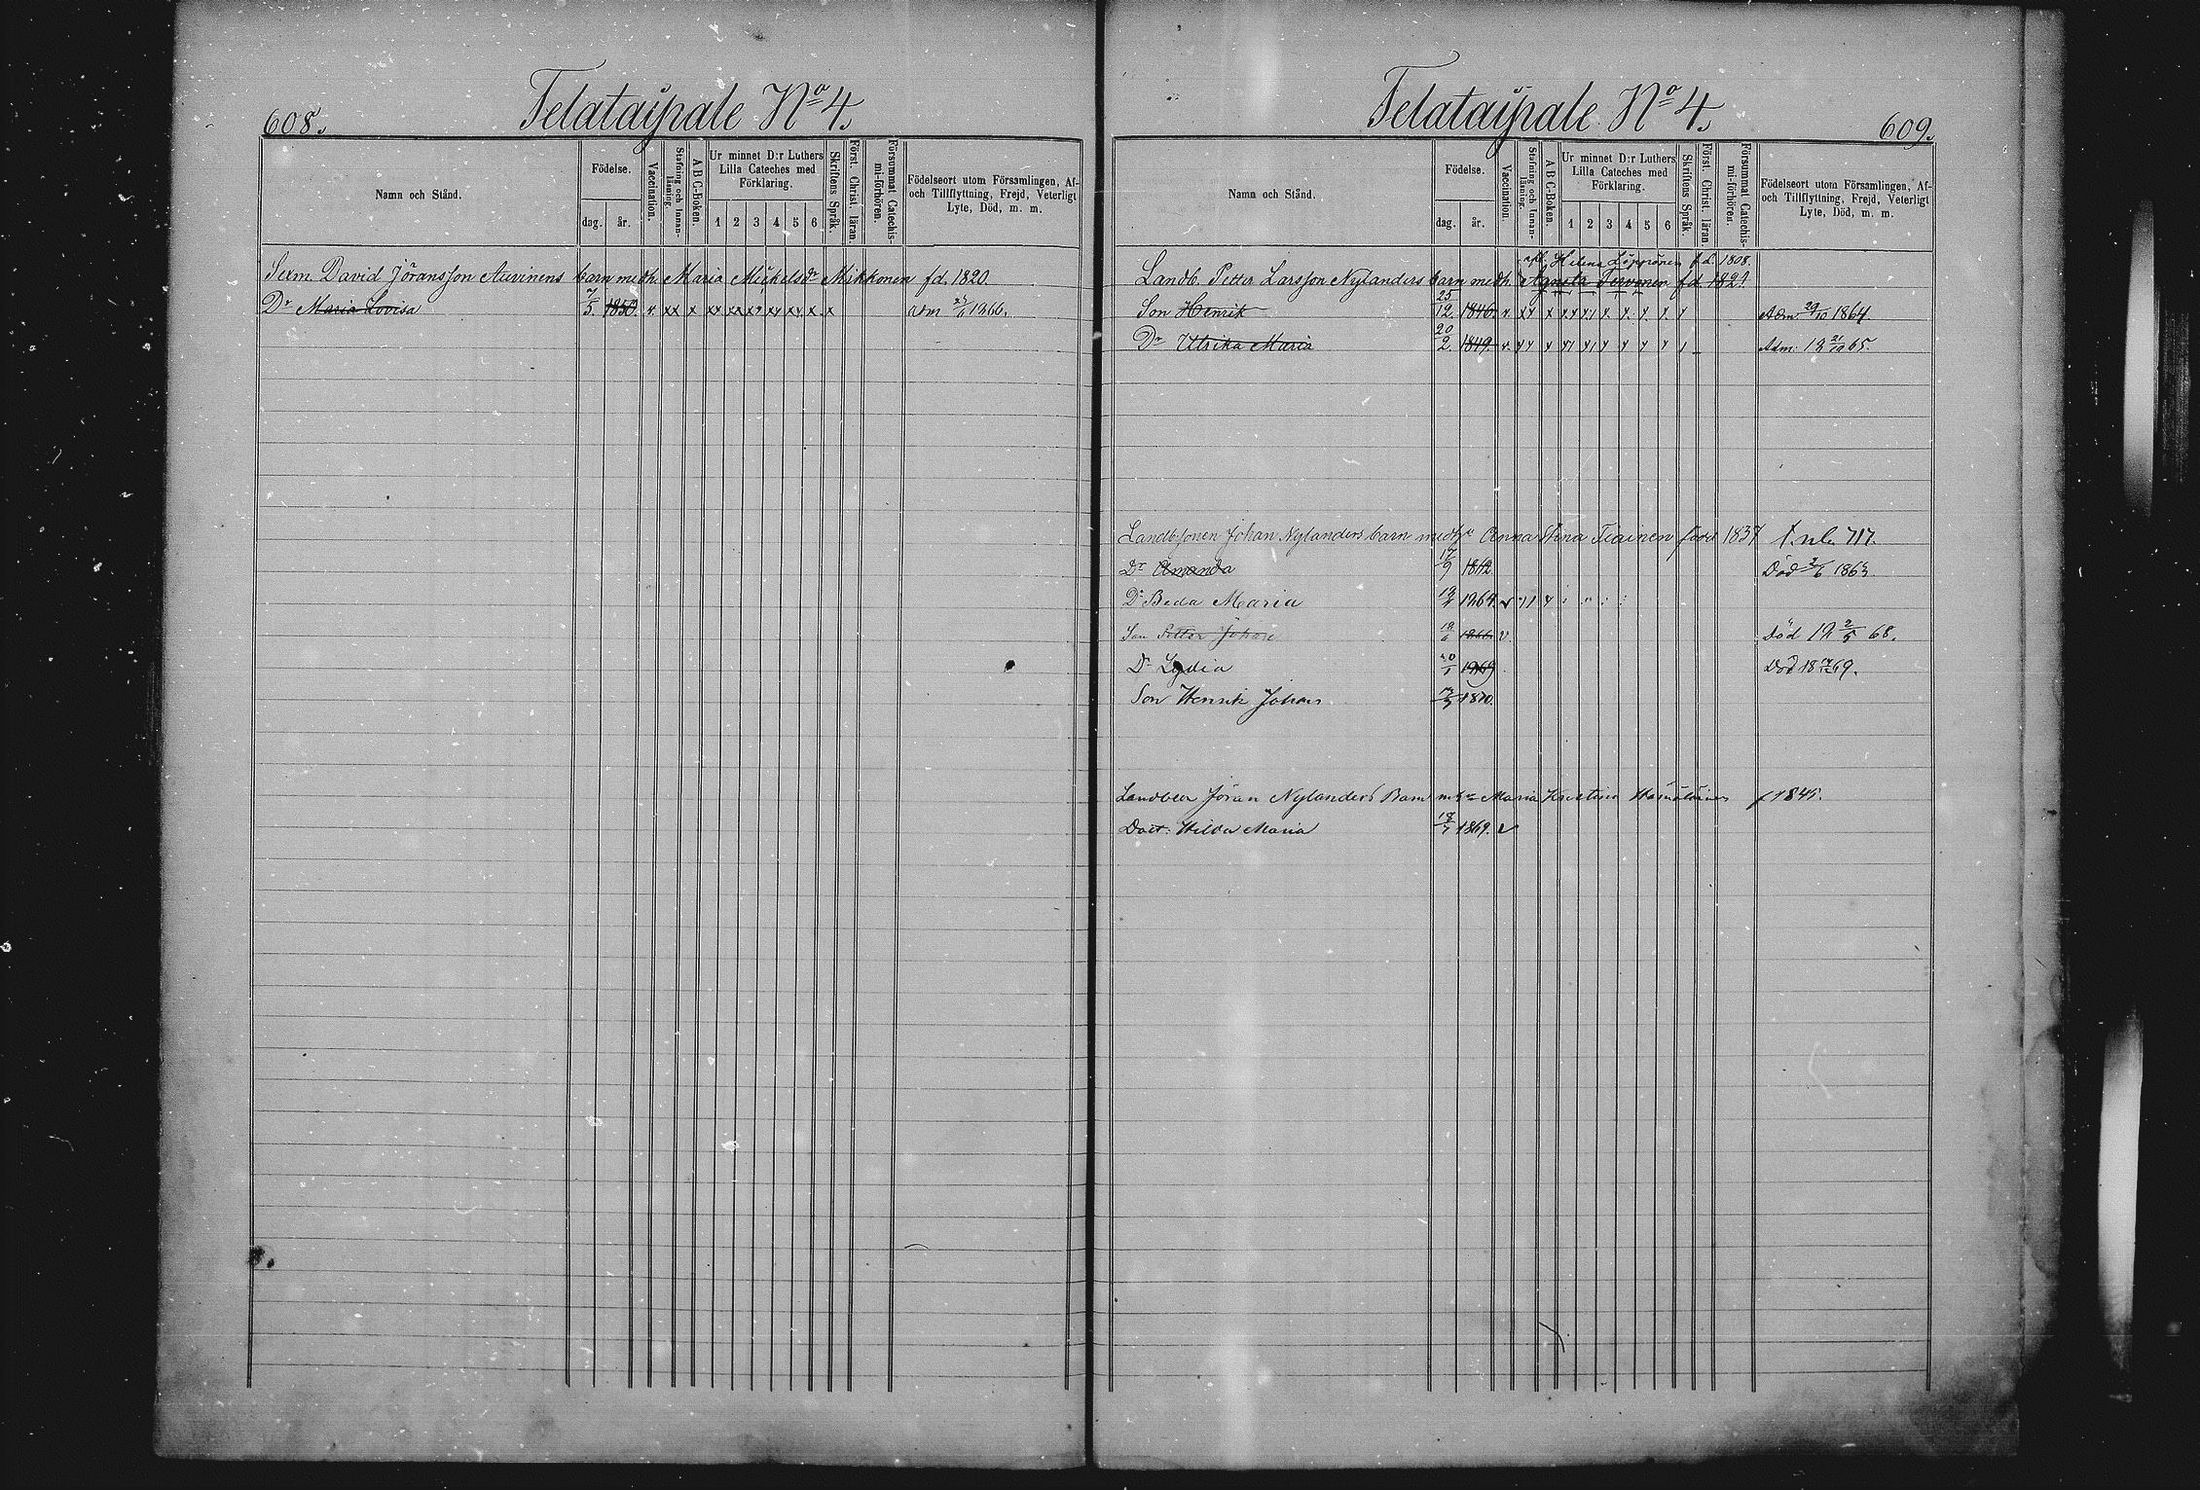 608.
Telataipale No 4.
Namn och Stånd.
Födelse.
dag.
år.
Vaccination.
Stafning och Innanläsning.
A B C-Boken.
Ur minnet D:r Luthers Lilla Cateches med Förklaring.
1 2 3 4 5 6
Skriftens Språk.
Först. Christ. läran.
Försummat Catechismi-förhören.
Födelseort utom Församlingen, Af- och Tillflyttning, Frejd, Veterligt Lyte, Död, m. m.
Sexm. David Jöransson Auvinens barn med h. Maria Michelsdr Mikkonen fd. 1820.
Dr Maria Lovisa 7/5. 1850. Adm 1866.
Telataipale No 4.
609.
Namn och Stånd.
Födelse.
dag.
år.
Vaccination.
Stafning och Innanläsning.
A B C-Boken.
Ur minnet D:r Luthers Lilla Cateches med Förklaring.
1 2 3 4 5 6
Skriftens Språk.
Först. Christ. läran.
Försummat Catechismi-förhören.
Födelseort utom Församlingen, Af- och Tillflyttning, Frejd, Veterligt Lyte, Död, m. m.
afl. Helena Löppönen fd. 1808.
Landb. Petter Larsson Nylanders barn med h. Agneta Tervonen fd 1821
Son Henrik 25/12. 1846. Adm 29/10 1864
Dr Ulrika Maria 20/2. 1849. Adm: 18 21/10 65.
Landbsonen Johan Nylanders barn med h. Anna Stina Tiainen född 1837 717.
Dr Amanda 17/9 1862 Död 1863
Dr Beda Maria 1864
Son Petter Johan 1866 Död 18 2/5 68.
Dr Lydia 1869 Död 18 69.
Son Henrik Johan 1870.
Landben Jöran Nylanders Barn m. h. Maria Kristina f 1845.
Dott: Hilda Maria 18/7 1869.